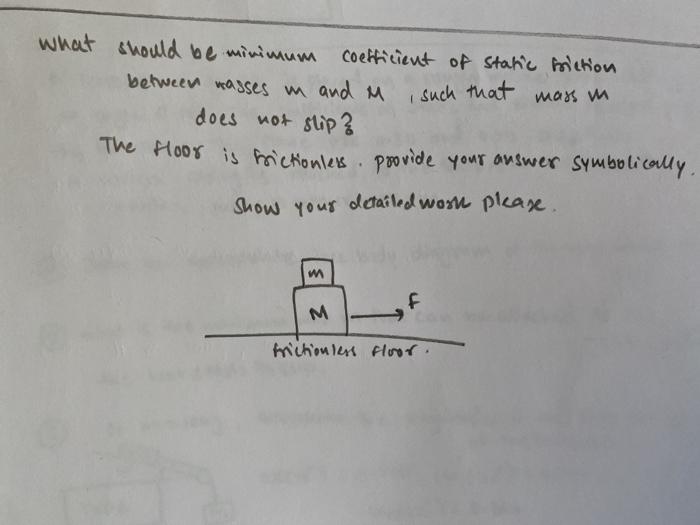 What should be minimum coefficient of static friction
between masses m and M , such that mass m
does not slip?
The floor is frictionless. provide your answer symbolically.
Show your detailed work please.
m
M
F
frictionless floor.